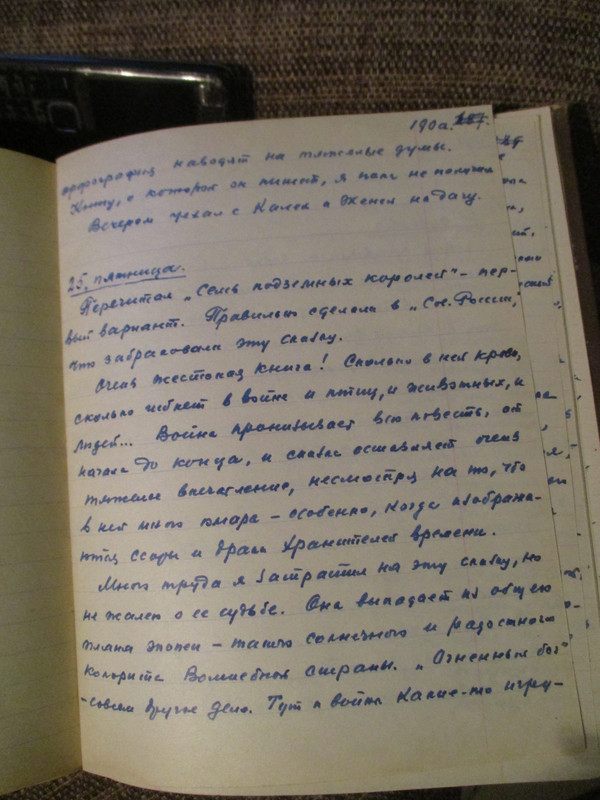 190а.
орфография наводят на тяжелые думы.
Книгу, о которой он пишет, я пока не получил
Вечером уехал с Калей и Женей на дачу.
25, пятница.
Перечитал „Семь подземных королей" – пер-
вый вариант. Правильно сделали в „Сов. России",
что забраковали эту сказку.
Очень жестокая книга! Сколько в ней крови,
сколько гибнет в войне и птиц, и животных, и
людей... Война пронизывает всю повесть, от
начала до конца, и сказка оставляет очень
тяжелое впечатление, несмотря на то, что
в ней много юмора – особенно, когда изобража-
ются ссоры и драки Хранителей времени.
Много труда я затратил на эту сказку, но
не жалею о ее судьбе. Она выпадает из общего
плана эпопеи – такого солнечного и радостного
колорита Волшебной страны. „Огненный бог"
– совсем другое дело. Тут и война какие-то игру-